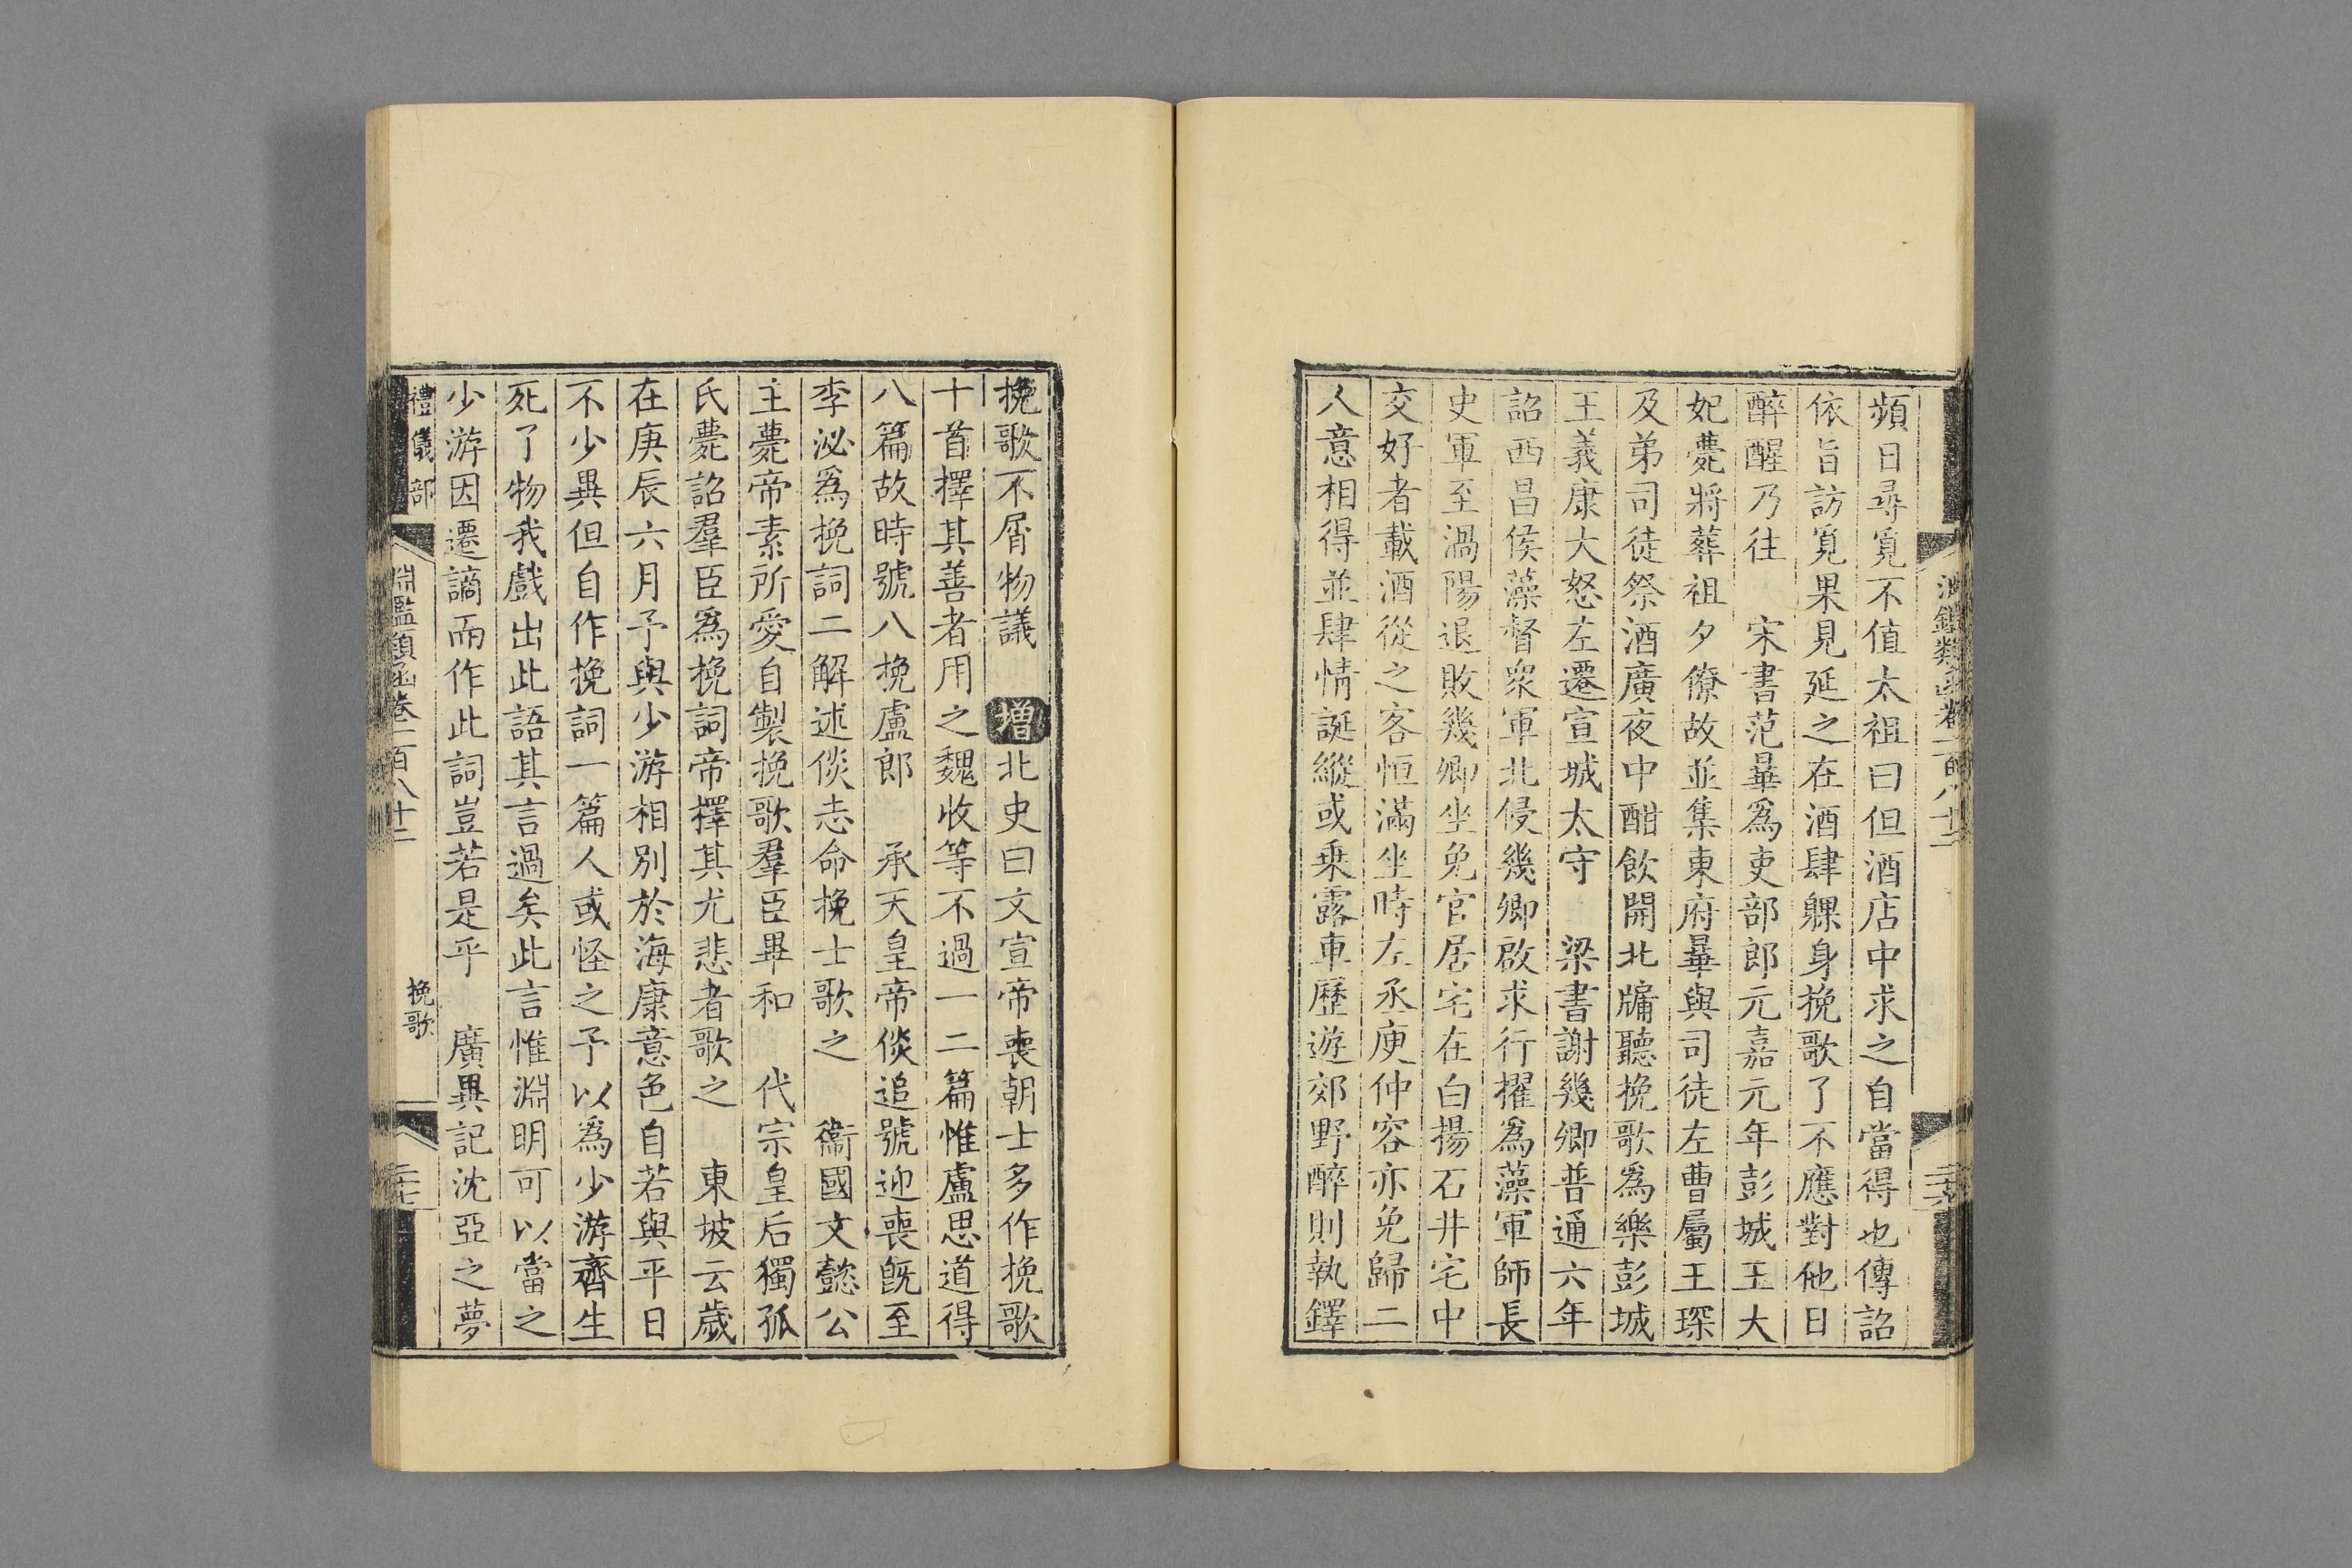 淵鑑類函卷一百八十二
頻日尋覓不值太祖曰但酒店中求之自當得也傳詔
依旨訪覓果見延之在酒肆躶身挽歌了不應對他日
醉醒乃往　宋書范曅爲吏部郎元嘉元年彭城王大
妃薨將葬祖夕僚故並集東府曅與司徒左曹屬王琛
及弟司徒祭酒廣夜中酣飲開北牖聽挽歌爲樂彭城
王義康大怒左遷宣城太守　梁書謝幾卿普通六年
詔西昌侯藻督衆軍北侵幾卿啟求行擢爲藻軍師長
史軍至渦陽退敗幾卿坐免官居宅在白揚石井宅中
交好者載酒從之客恒滿坐時左丞庾仲容亦免歸二
人意相得並肆情誕縱或乗露車歷遊郊野醉則執鐸
挽歌不屑物議　增北史曰文宣帝喪朝士多作挽歌
十首擇其善者用之魏收等不過一二篇惟盧思道得
八篇故時號八挽盧郎　承天皇帝倓追號迎喪既至
李泌爲挽詞二解述倓志命挽士歌之　衞國文懿公
主薨帝素所愛自製挽歌羣臣畢和　代宗皇后獨孤
氏薨詔羣臣爲挽詞帝擇其尤悲者歌之　東坡云歲
在庚辰六月予與少游相別於海康意色自若與平日
不少異但自作挽詞一篇人或怪之予以爲少游齊生
死了物我戲出此語其言過矣此言惟淵明可以當之
少游因遷謫而作此詞豈若是乎　廣異記沈亞之夢
禮儀部
淵鑑類函卷一百八十二
挽歌
二十七